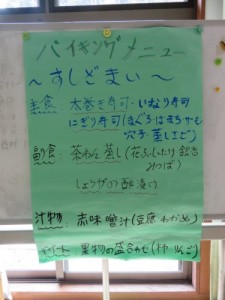 バイキングメニュー
～すしざまい～
主食：太巻き寿司・いなり寿司
にぎり寿司（まぐろ はまち サーモ
穴子 蒸しえび）
副食：茶わん蒸し（花ふ しいたけ 銀杏
みつば）
しょうがの酢漬け
汁物：赤味噌汁（豆腐 わかめ）
果物の盛合わせ（柿 りんご）